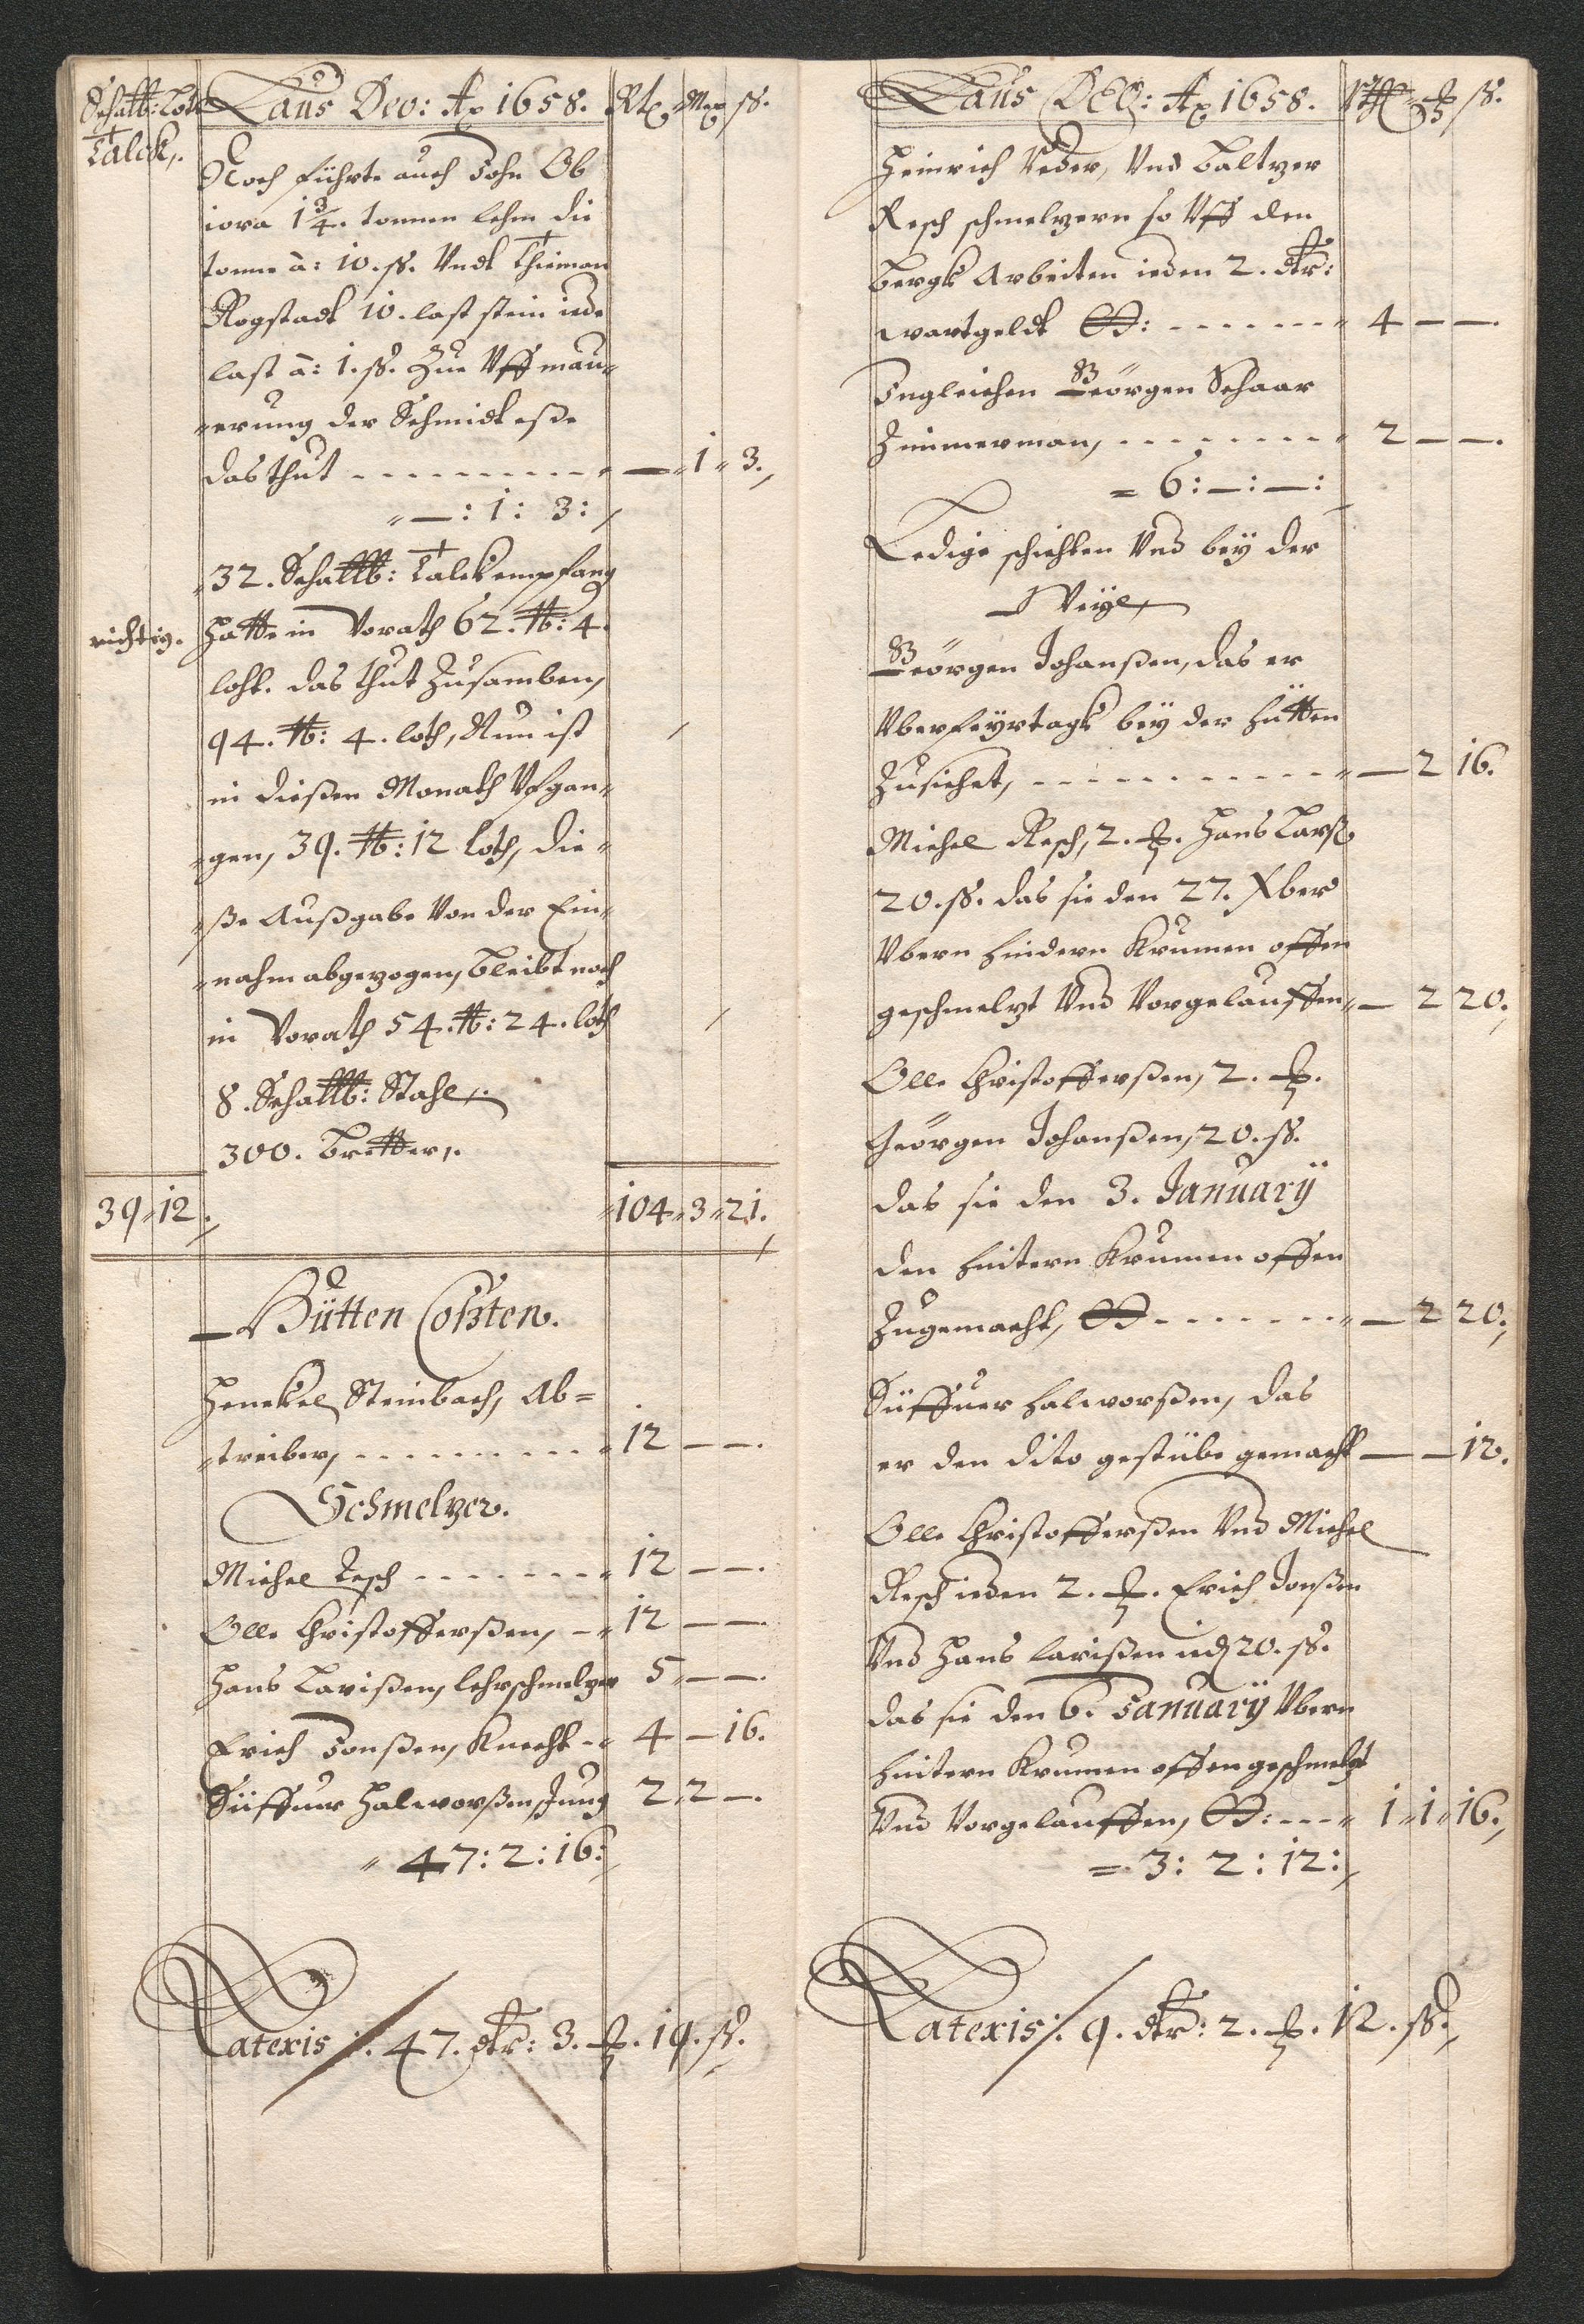 Schalb: Loth
Talck,.
Laus Deo: Ao 1658. Rtl. Mrx. ß.
Noch führte auch John Ob
iora 1¾. tonnen lehm die
tonne à: 10. ß. Undt Thieman
Rogstadt 10. last stein iede
last à: 1. ß. Zue Uff mau„
„erung der Schmidt eße
das thut - - - - - - - - - „ — „ 1 „ 3.
„ — : 1 : 3 :
32. Schallb: Talck empfang
richtig. hatte in Vorath 62. ℔: 4.
loht. das thut Zusamben,
94. ℔: 4. loth, Nun ist
in dießen Monath Ufgan„
„gen, 39. ℔: 12 Loth, die„
„ße Außgabe Von der Ein„
„nahm abgezogen, bleibt noch
in Vorath 54. ℔: 24. loth
8. Schallb: Stahl,.
300. bretter,.
39 „ 12. „ 104 „ 3 „ 21.
Hütten Coßten.
Henckel Steinbach, Ab=
„treiber, - - - - - - - - „ 12 — —.
Schmelzer.
Michel Resch - - - - - - - „ 12 — —.
Olle Christofferßen, - „ 12 — —.
Hans Larißen, lehrschmelzer 5 — —.
Erich Jonßen, Knecht - „ 4 — 16.
Süffuer Halworßen Jung 2 „ 2 —.
„ 47 : 2 : 16 :
Lateris ∴ 47. dlr: 3. . 19. ß.
Laus DEO: Ao 1658. ß.
Heinrich Veder, Und Baltzer
Resch schmelzern so Uff den
Bergk Arbeiten ieden 2. dlr:
wartgeldt : - - - - - - - „ 4 — —.
Ingleichen Geörgen Schaar
Zimmerman, - - - - - - - - „ 2 — —.
= 6 : — : — :
Ledige schichten Und bey der
Weyl,
Geörgen Johanßen, das er
Uber feyrtagk bey der hütten
Zusiehet, - - - - - - - - - - - „ — 2 16.
Michel Resch, 2. . Hans Larß
20. ß. das sie den 27. Xber
Ubern hindern Krumen offen
geschmelzt Und Vorgelauffen „ — 2 20.
Olle Christofferßen, 2. .
Geörgen Johanßen, 20. ß.
das sie den 3. January
den hintern Krumen offen
Zugemacht, - - - - - - - „ — 2 20.
Süffuer halworßen, das
er den dito gestübe gemacht — — 12.
Olle Christofferßen Und Michel
Resch ieden 2. . Erich Jonßen
Und Hans larißen 20. ß.
das sie den 6. January Ubern
hintern Krumen offen geschmelzt
Und Vorgelauffen, : - - - „ 1 „ 1 „ 16.
= 3 : 2 : 12 :
Lateris ∴ 9. dlr: 2. . 12. ß.